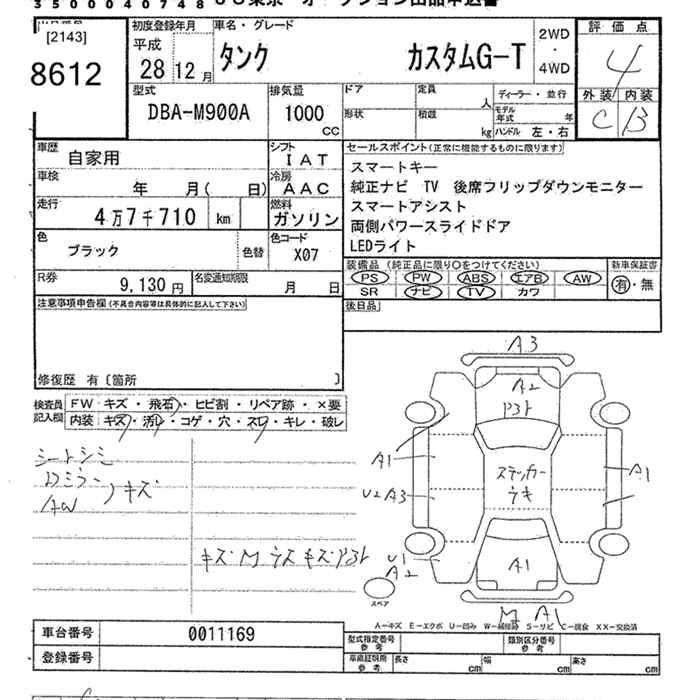 3500040748
[2143]
8612
初度登録年月
平成
28 12月
車名・グレード
タンク カスタムG-T
2WD
・
4WD
評価点
4
外装 内装
C B
型式
DBA-M900A
排気量
1000
CC
ドア
定員
人
形状
積載
kg
ディーラー・並行
モデル年式 年
ハンドル 左・右
車歴
自家用
シフト
IAT
車検
年 月( 日)
冷房
AAC
走行
4万7千710 km
燃料
ガソリン
色
ブラック
色替
色コード
X07
R券
9,130円
名変通知期限
月 日
セールスポイント(正常に機能するものに限ります)
スマートキー
純正ナビ TV 後席フリップダウンモニター
スマートアシスト
両側パワースライドドア
LEDライト
装備品(純正品に限り○をつけてください)
PS PW ABS エアB AW
SR ナビ TV カワ
新車保証書
有・無
後日品
注意事項申告欄(不具合内容等は具体的に記入して下さい)
修復歴 有〔箇所 〕
検査員記入欄
FW キズ・飛石・ヒビ割・リペア跡・×要
内装 キズ・汚レ・コゲ・穴・スレ・キレ・破レ
シートシミ
Dミラー
AW
キズ
A3
A2
A1
U2 A3
ステッカー
ウキ
A1
U1
A2
A1
M A1
スペア
A－キズ E－エクボ U－凹み W－補修跡 S－サビ C－腐食 XX－交換済
車台番号
0011169
登録番号
型式指定番号
参考
類別区分番号
参考
車庫証明用
参考
長さ cm
幅 cm
高さ cm